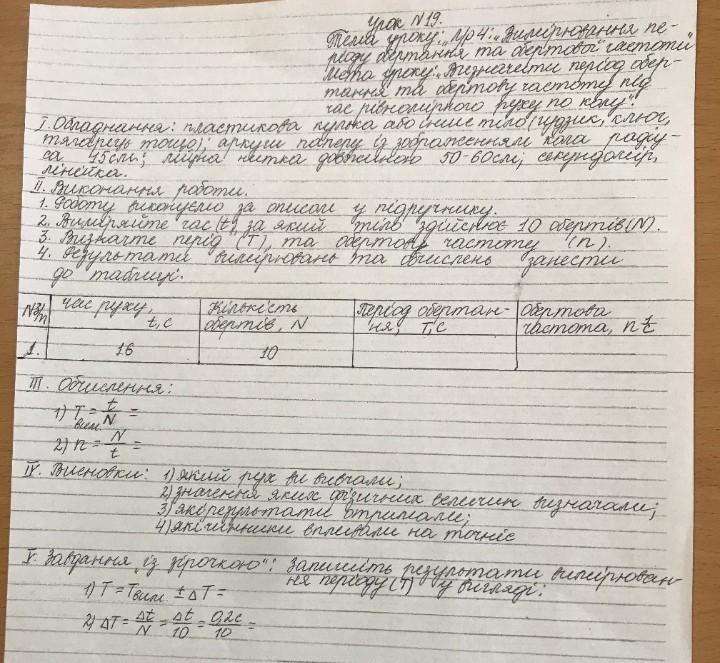 Урок №19.
Тема уроку: „Л/р 4: „Вимірювання пе-
ріоду обертання та обертової частоти"
Мета уроку: „Визначити період обер-
тання та обертову частоту під
час рівномірного руху по колу".
I. Обладнання: пластикова кулька або інше тіло (гудзик, ключ,
тягарець тощо); аркуш паперу із зображенням кола радіу-
са 15см; міцна нитка довжиною 50-60см; секундомір,
лінійка.
II. Виконання роботи.
1. Роботу виконуємо за описом у підручнику.
2. Виміряйте час (t), за який тіло здійснює 10 обертів (N).
3. Визначте період (T), та обертову частоту (n).
4. Результати вимірювань та обчислень занести
до таблиці.
№ з/п Час руху, t, с Кількість обертів, N Період обертан-ня, T, с Обертова частота, n 1/с
1. 16 10
III. Обчислення:
1) Tвим. = t/N =
2) n = N/t =
IV. Висновки: 1) який рух ви вивчали;
2) значення яких фізичних величин визначали;
3) які результати отримали;
4) які чинники вплевали на точніс
V. Завдання „із зірочкою": Запишіть результати вимірюван-
ня періоду (T) у вигляді:
1) T = Tвим. ± ΔT =
2) ΔT = Δt/N = Δt/10 = 0,2с/10 =